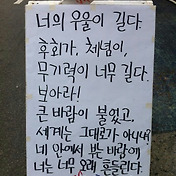 너의 우울이 길다
후회가, 체념이,
무기력이 너무 길다.
보아라!
큰 바람이 불었고,
세계는 그대로가 아니냐?
네 안에서 부는 바람에
너는 너무 오래 흔들린다.